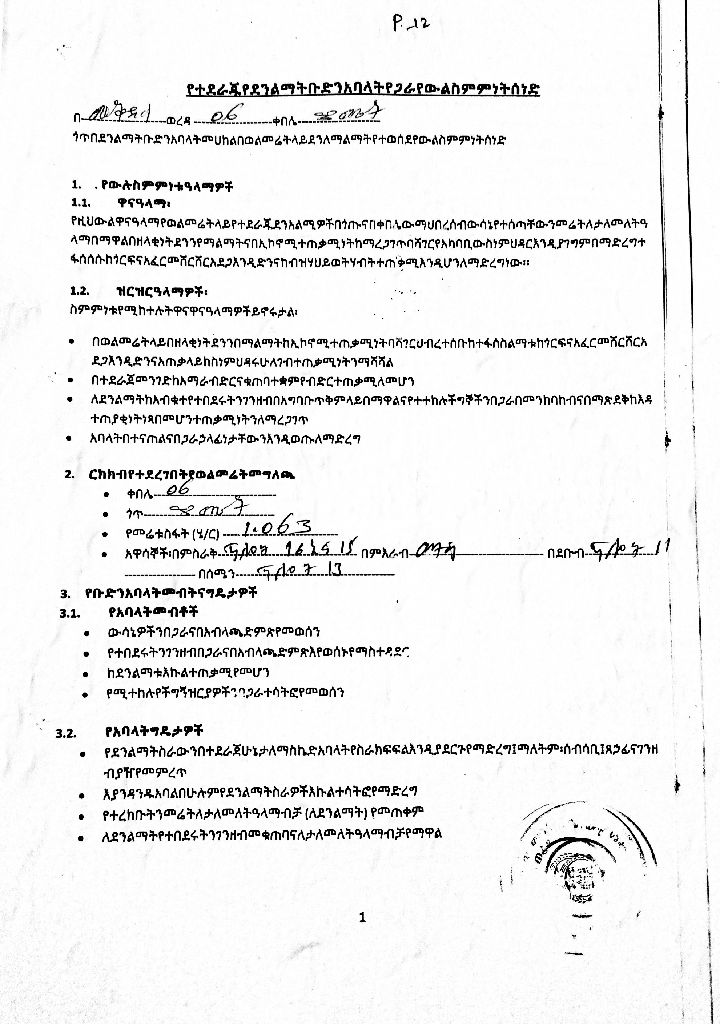 P. 12
የተደራጁየደንልማትቡድንአባላትየጋራየውልስምምነትሰነድ
በ ወረዳ 06 ቀበሌ
ጎጥበደንልማትቡድንአባላትመሀከልበወልመሬትላይደንለማልማትየተወሰደየውልስምምነትሰነድ
1. የውሉስምምነቱዓላማዎች
1.1. ዋናዓላማ፡
የዚህውልዋናዓላማየወልመሬትላይየተደራጁደንአልሚዎችበጎጡናበቀበሌውማህበረሰብውሳኔየተሰጣቸውንመሬትለታለመለትዓ
ላማበማዋልበዘላቂነትደንንየማልማትናበኢኮኖሚተጠቃሚነትከማረጋገጥባሻገርየአካባቢውስነምህዳርእንዲያገግምበማድረግተ
ፋሰሱከጎርፍናአፈርመሸርሸርአደጋእንዲድንናከብዝሃህይወትሃብትተጠቃሚእንዲሆንለማድረግነው።
1.2. ዝርዝርዓላማዎች፡
ስምምነቱየሚከተሉትዋናዋናዓላማዎችይኖሩታል፡
• በወልመሬትላይበዘላቂነትደንንበማልማትከኢኮኖሚተጠቃሚነትባሻገርህብረተሰቡከተፋሰስልማቱከጎርፍናአፈርመሸርሸርአ
ደጋእንዲድንናአጠቃላይከስነምህዳሩሁለገብተጠቃሚነትንማሻሻል
• በተደራጀመንገድከአማራብድርናቁጠባተቋምየብድርተጠቃሚለመሆን
• ለደንልማትከአብቁተየተበደሩትንገንዘብበአግባቡጥቅምላይበማዋልናየተተከሉችግኞችንበጋራበመንከባከብናበማጽደቅከእዳ
ተጠያቂነትነጻበመሆንተጠቃሚነትንለማረጋገጥ
• አባላትበተናጠልናበጋራኃላፊነታቸውንእንዲወጡለማድረግ
2. ርክክብየተደረገበትየወልመሬትመግለጫ
• ቀበሌ 06
• ጎጥ
• የመሬቱስፋት (ሄ/ር) 1.063
• አዋሳኞች፡በምስራቅ በምእራብ በደቡብ
በሰሜን
3. የቡድንአባላትመብትናግዴታዎች
3.1. የአባላትመብቶች
• ውሳኔዎችንበጋራናበአብላጫድምጽየመወሰን
• የተበደሩትንገንዘብበጋራናበአብላጫድምጽእየወሰኑየማስተዳደር
• ከደንልማቱእኩልተጠቃሚየመሆን
• የሚተከሉየችግኝዝርያዎችንበጋራተሳትፎየመወሰን
3.2. የአባላትግዴታዎች
• የደንልማትስራውንበተደራጀሁኔታለማስኬድአባላትየስራክፍፍልእንዲያደርጉየማድረግ፤ማለትም፡ሰብሳቢ፤ጸኃፊናገንዘ
ብያዥየመምረጥ
• እያንዳንዱአባልበሁሉምየደንልማትስራዎችእኩልተሳትፎየማድረግ
• የተረከቡትንመሬትለታለመለትዓላማብቻ (ለደንልማት) የመጠቀም
• ለደንልማትየተበደሩትንገንዘብመቁጠባናለታለመለትዓላማብቻየማዋል
1